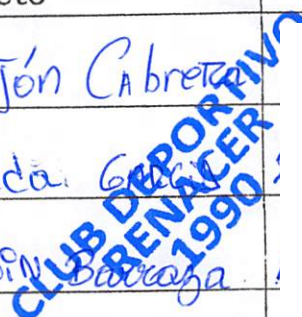 jón CAbrera
da. García
Barraza.
CLUB DEPORTIVO
RENACER
1990